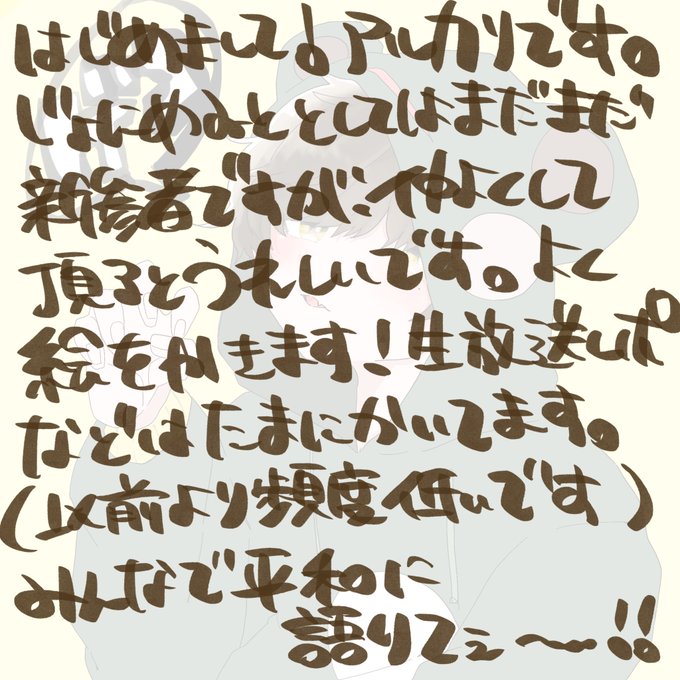 はじめまして!アルカリです。
じょにめみととしてはまだまだ
新参者ですが、仲よくして
頂るとうれしいです。よく
絵をかきます!生放送レポ
などはたまにかいてます。
(以前より頻度低いです)
みんなで平和に
語りてぇ〜!!